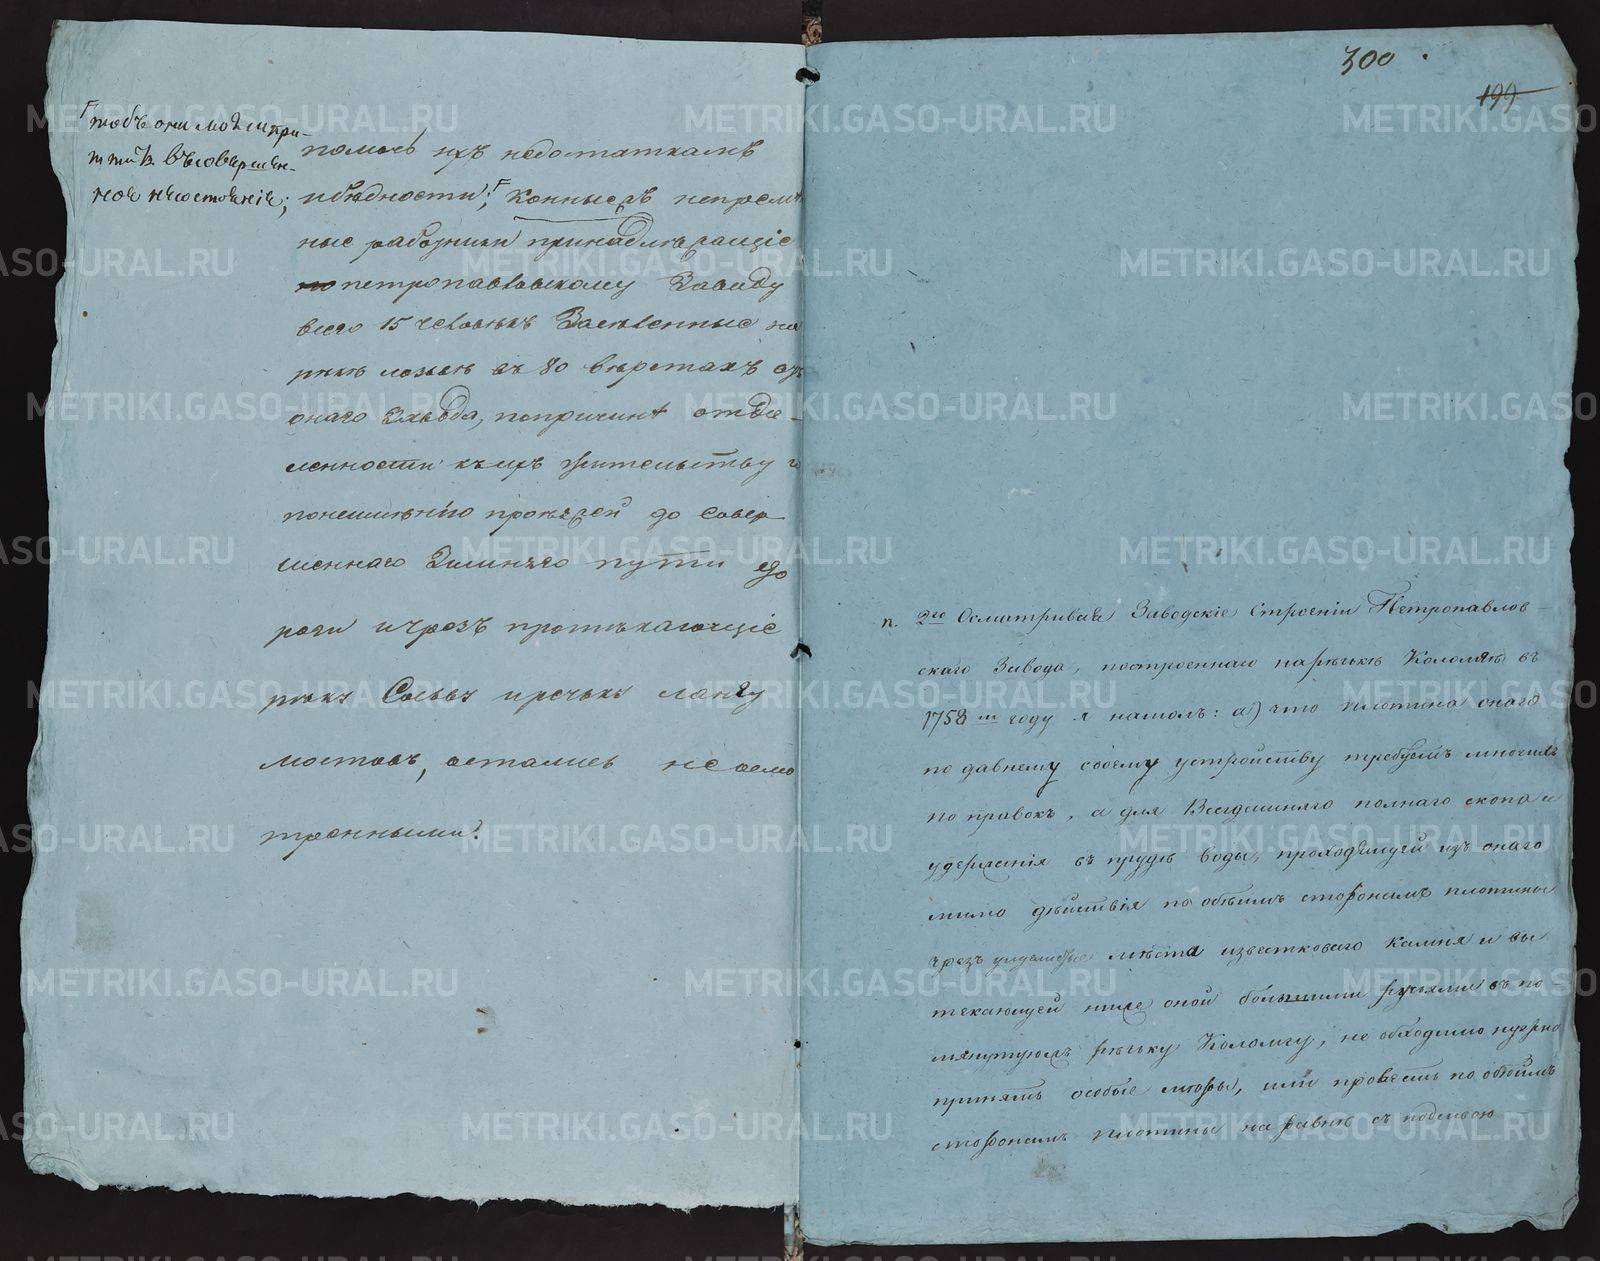 чтобъ они могли при-
тти въ совершен-
ное несостояніе;
помочь ихъ недостаткамъ
и бѣдности; Конныежъ непремѣн
ные работники принадлежащіе
Петропавловскому Заводу
всего 15 человѣкъ Заселенные на
рѣкѣ въ 80 верстахъ отъ
онаго Завода, по причинѣ отда-
ленности къ ихъ жительству и
по неимѣнію проѣзжей до совер
шеннаго Зимняго пути до
роги и чрезъ протѣкающіе
рѣкъ Сосьву и речьку Лангу
мостовъ, остались не осмо
тренными.
300
199
п. 2го Осматривая Заводскіе Строенія Петропавлов-
скаго Завода, построеннаго на рѣчькѣ Колонгѣ въ
1758м году я нашолъ: а) что плотина онаго
по давнему своему устройству требуетъ многихъ
по правокъ, а для Всегдашняго полнаго скопа и
удержанія въ прудѣ воды, проходящей изъ онаго
мимо дѣйствія по обѣимъ сторонамъ плотины
чрезъ мѣста известковаго Камня и вы
текающей ниже оной большими ручьями въ по
мянутую рѣчьку Колонгу, не обходимо нужно
принять особые меры, или провесть по обѣимъ
сторонамъ плотины на равнѣ съ подошвою